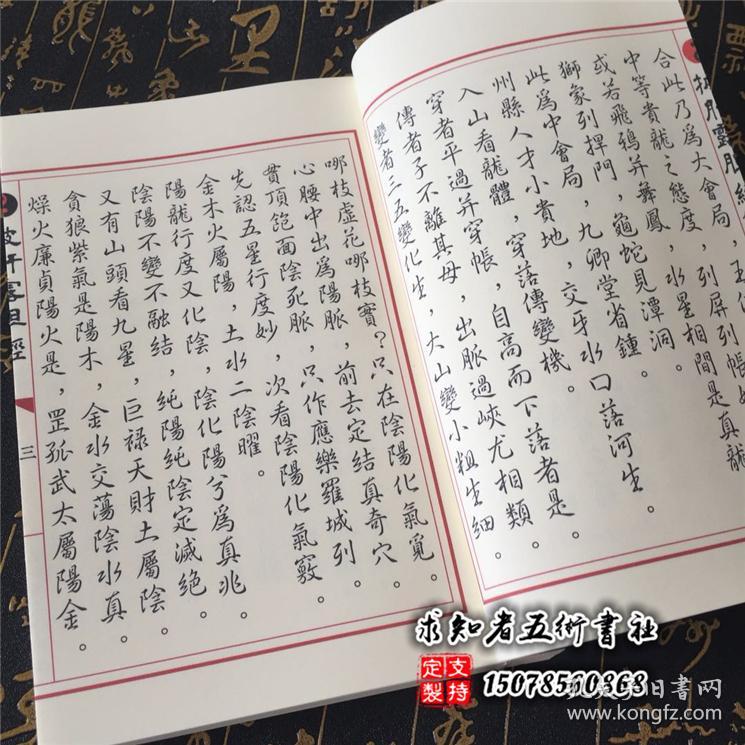 合此乃為大會局，
中等貴龍之態度，列屏列帳
或若飛鴉并舞鳳，水星相間是真龍
獅象列捍門，龜蛇見潭洞。
此為中會局，九卿堂省鐘。
州縣人才小貴地，交牙水口落河生。
入山看龍體，穿落傳變機。
穿者平過并穿帳，自高而下落者是。
傳者子不離其母，出脈過峽尤相類。
變者二五變化生，大山變小粗生細。
哪枝虛花哪枝實？只在陰陽化氣覓。
心腰中出為陽脈，前去定結真奇穴。
貫頂飽面陰死脈，只作應樂羅城列。
先認五星行度妙，次看陰陽化氣竅。
金木火屬陽，土水二陰曜。
陽龍行度又化陰，陰化陽兮為真兆。
陰陽不變不融結，純陽純陰定滅絕。
又有山頭看九星，巨祿天財土屬陰。
貪狼紫氣是陽木，金水交蕩陰水真。
燥火廉貞陽火是，罡孤武太屬陽金。
三
求知者五術書社
支持定製
15078510868
www.kongfz.com